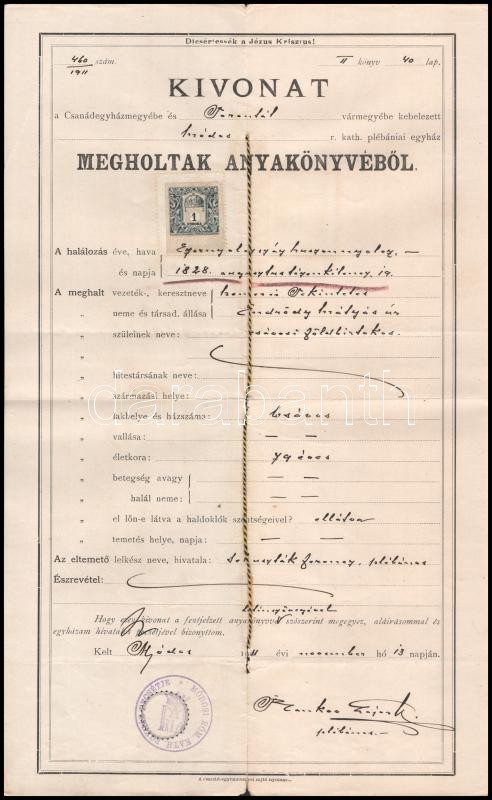 Dicsértessék a Jézus Krisztus!
460 szám. II könyv 40 lap.
1911
KIVONAT
a Csanádegyházmegyébe és Torontál vármegyébe kebelezett
Módos r. kath. plébániai egyház
MEGHOLTAK ANYAKÖNYVÉBŐL.
1
A halálozás éve, hava Egyezernyolcszázhuszonnyolcz, –
és napja 1828. augusztus tizenkilencz, 19.
A meghalt vezeték-, keresztneve Tekintetes
„ neme és társad. állása Endrődy Mátyás úr
„ szüleinek neve: csávosi földbirtokos.
„ hitestársának neve:
„ származási helye:
„ lakhelye és házszáma: Csávos
„ vallása: — —
„ életkora: 79 éves
„ betegség avagy — —
„ halál neme: — —
„ el lőn-e látva a haldoklók szentségeivel? ellátva
„ temetés helye, napja: — —
Az eltemető lelkész neve, hivatala: Ferencz, plébános
Észrevétel:
Hogy ezen kivonat a fentjelzett anyakönyvvel szószerint megegyez, aláirásommal és
egyházam hivatalos pecsétjével bizonyítom.
Kelt Módos 1911 évi november hó 13 napján.
MÓDOSI RÓM. KATH.
plébános
A csanád-egyházmegyei sajtó nyomása.
darabanth